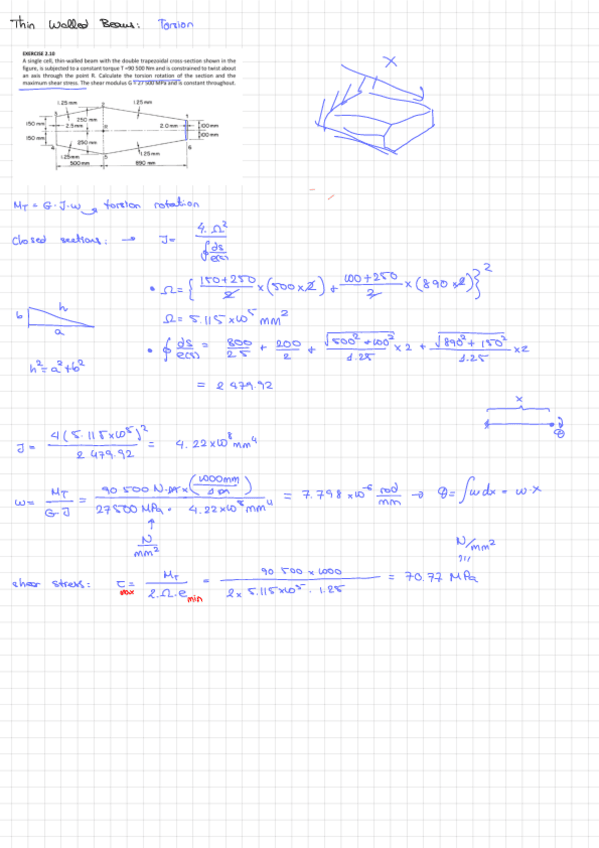 Thin Walled Beams: Torsion
EXERCISE 2.10
A single cell, thin-walled beam with the double trapezoidal cross-section shown in the
figure, is subjected to a constant torque T =90 500 Nm and is constrained to twist about
an axis through the point R. Calculate the torsion rotation of the section and the
maximum shear stress. The shear modulus G = 27 500 MPa and is constant throughout.
1.25 mm 1.25 mm
2
3 1
150 mm 250 mm 100 mm
2.5 mm 2.0 mm
150 mm 250 mm 100 mm
4 5 6
1.25 mm 1.25 mm
500 mm 890 mm
x
M_T = G · J · ω → torsion rotation
Closed sections: → J = 4 · Ω² / ∮ ds/e(s)
• Ω = { (150+250)/2 × (500 × 2) + (100+250)/2 × (890 × 2) }²
Ω = 5.115 × 10⁵ mm²
b h a
• ∮ ds/e(s) = 800/25 + 200/2 + √(500² + 100²)/1.25 × 2 + √(890² + 150²)/1.25 × 2
h² = a² + b²
= 2 479.92
x
θ
J = 4 (5.115 × 10⁵)² / 2 479.92 = 4.22 × 10⁸ mm⁴
ω = M_T / G · J = 90 500 N·m × (1000 mm / 1 m) / 27500 MPa · 4.22 × 10⁸ mm⁴ = 7.798 × 10⁻⁶ rad/mm → θ = ∫ω dx = ω · x
↑
N/mm²
N/mm²
shear stress: τ max = M_T / 2 · Ω · e min = 90 500 × 1000 / 2 × 5.115 × 10⁵ · 1.25 = 70.77 MPa